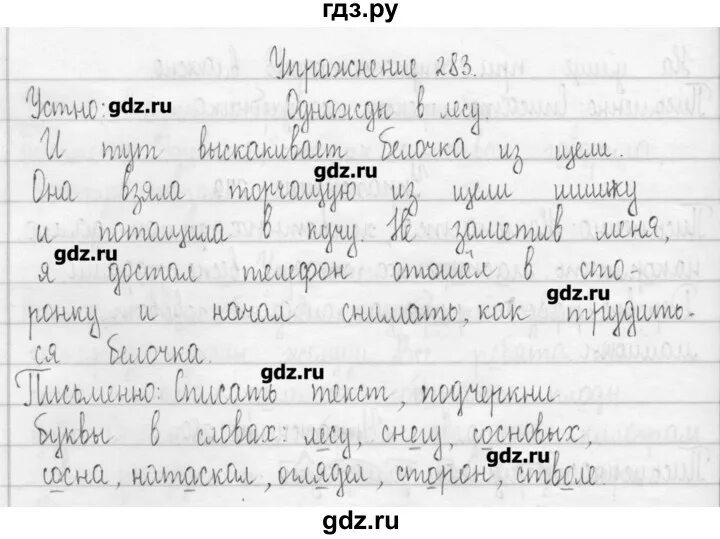 гдз.ру
Упражнение 283.
Устно: gdz.ru Однажды в лесу.
И тут выскакивает белочка из щели.
gdz.ru
Она взяла торчащую из щели шишку
и потащила в кучу. Не заметив меня,
gdz.ru
я достал телефон отошёл в сто-
gdz.ru
ронку и начал снимать, как трудить-
ся белочка.
gdz.ru
Письменно: Списать текст, подчеркни
буквы в словах: лесу, снегу, сосновых,
gdz.ru
сосна, натаскал, оглядел, сторон, стволе.
gdz.ru